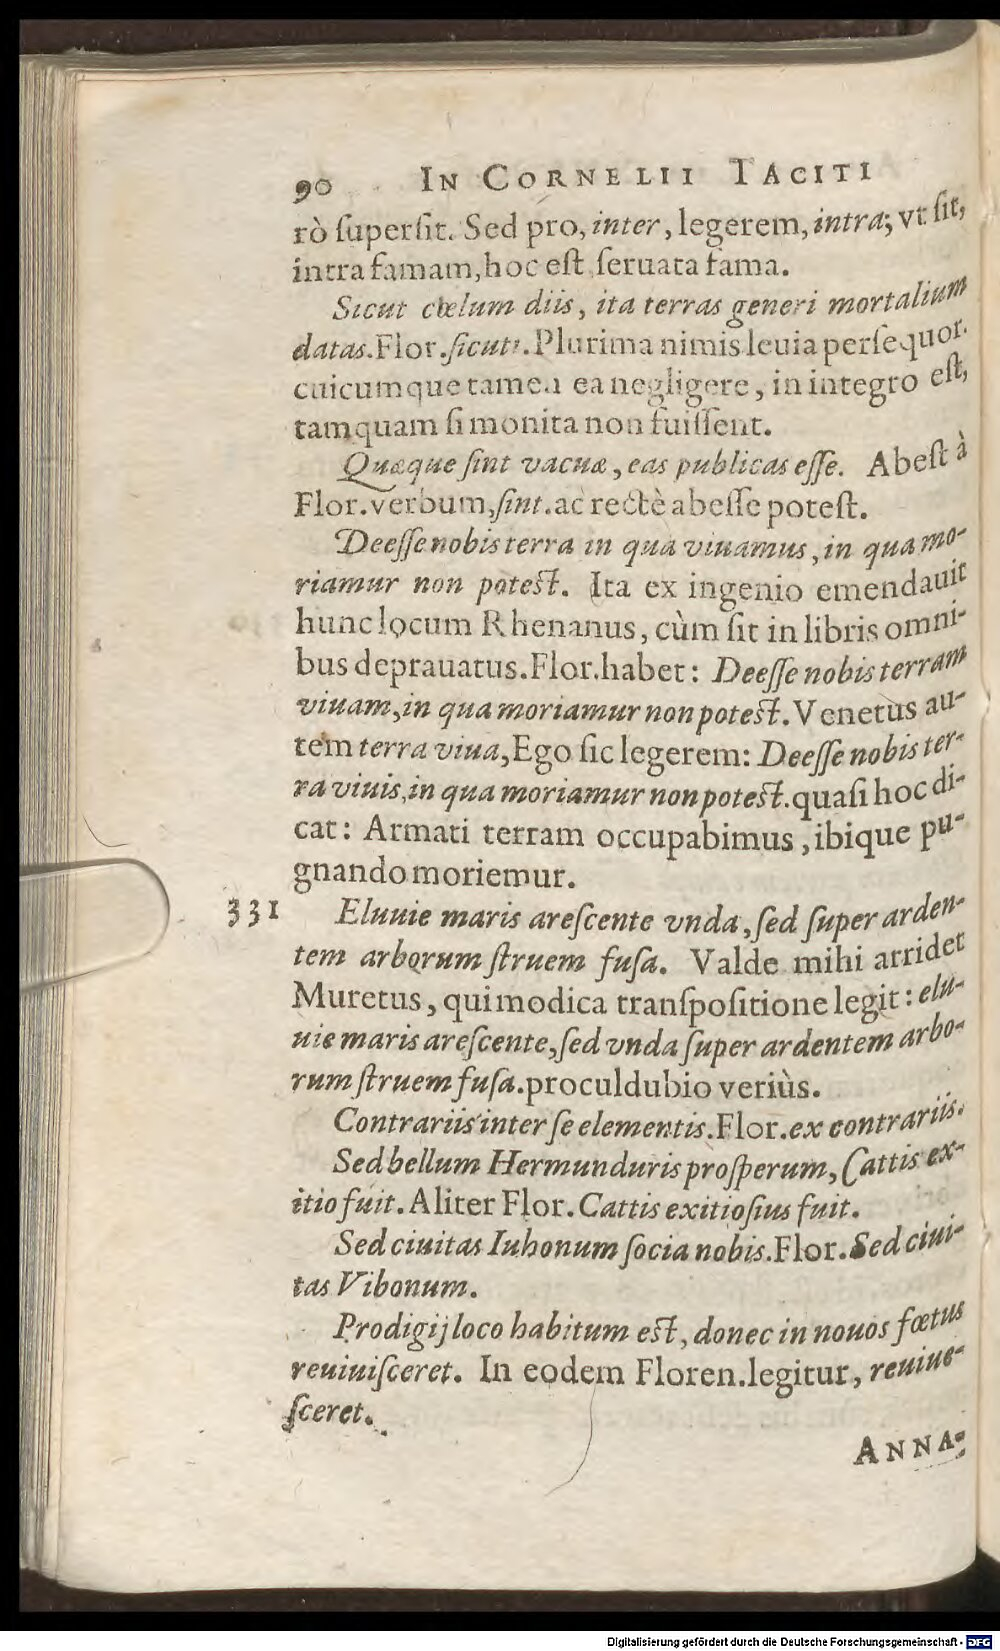 90 IN CORNELII TACITI
rò ſuperſit. Sed pro, inter, legerem, intra; vt ſit,
intra famam, hoc eſt ſeruata fama.
Sicut cœlum diis, ita terras generi mortalium
datas. Flor. ſicuti. Plurima nimis leuia perſequor.
cuicumque tamen ea negligere, in integro eſt,
tamquam ſi monita non fuiſſent.
Quæque ſint vacuæ, eas publicas eſſe. Abeſt à
Flor. verbum, ſint. ac rectè abeſſe poteſt.
Deeſſe nobis terra in qua viuamus, in qua mo-
riamur non poteſt. Ita ex ingenio emendauit
hunc locum Rhenanus, cùm ſit in libris omni-
bus deprauatus. Flor. habet: Deeſſe nobis terram
viuam, in qua moriamur non poteſt. Venetus au-
tem terra viua, Ego ſic legerem: Deeſſe nobis ter-
ra viuis, in qua moriamur non poteſt. quaſi hoc di-
cat: Armati terram occupabimus, ibique pu-
gnando moriemur.
331 Eluuie maris areſcente vnda, ſed ſuper arden-
tem arborum ſtruem fuſa. Valde mihi arridet
Muretus, qui modica tranſpoſitione legit: elu-
uie maris areſcente, ſed vnda ſuper ardentem arbo-
rum ſtruem fuſa. proculdubio veriùs.
Contrariis inter ſe elementis. Flor. ex contrariis.
Sed bellum Hermunduris proſperum, Cattis ex-
itio fuit. Aliter Flor. Cattis exitioſius fuit.
Sed ciuitas Iuhonum ſocia nobis. Flor. Sed ciui-
tas Vibonum.
Prodigij loco habitum eſt, donec in nouos fœtus
reuiuiſceret. In eodem Floren. legitur, reuiue-
ſceret.
ANNA-
Digitalisierung gefördert durch die Deutsche Forschungsgemeinschaft - DFG